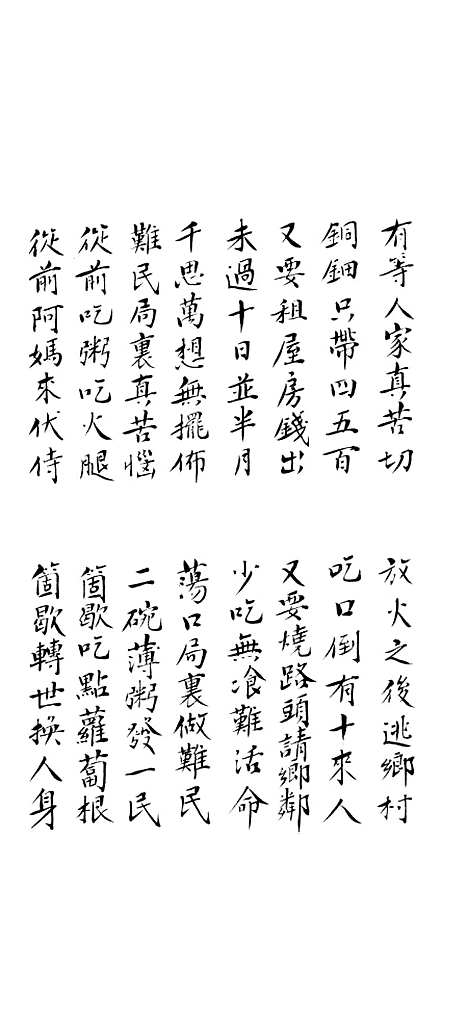 有等人家真苦切
放火之後逃鄉村
銅鈿只帶四五百
吃口倒有十來人
又要租屋房錢出
又要燒路頭請鄉鄰
未過十日並半月
少吃無飡難活命
千思萬想無擺佈
蕩口局裏做難民
難民局裏真苦惱
二碗薄粥發一民
從前吃粥吃火腿
箇歇吃點蘿蔔根
從前阿媽來伏侍
箇歇轉世換人身